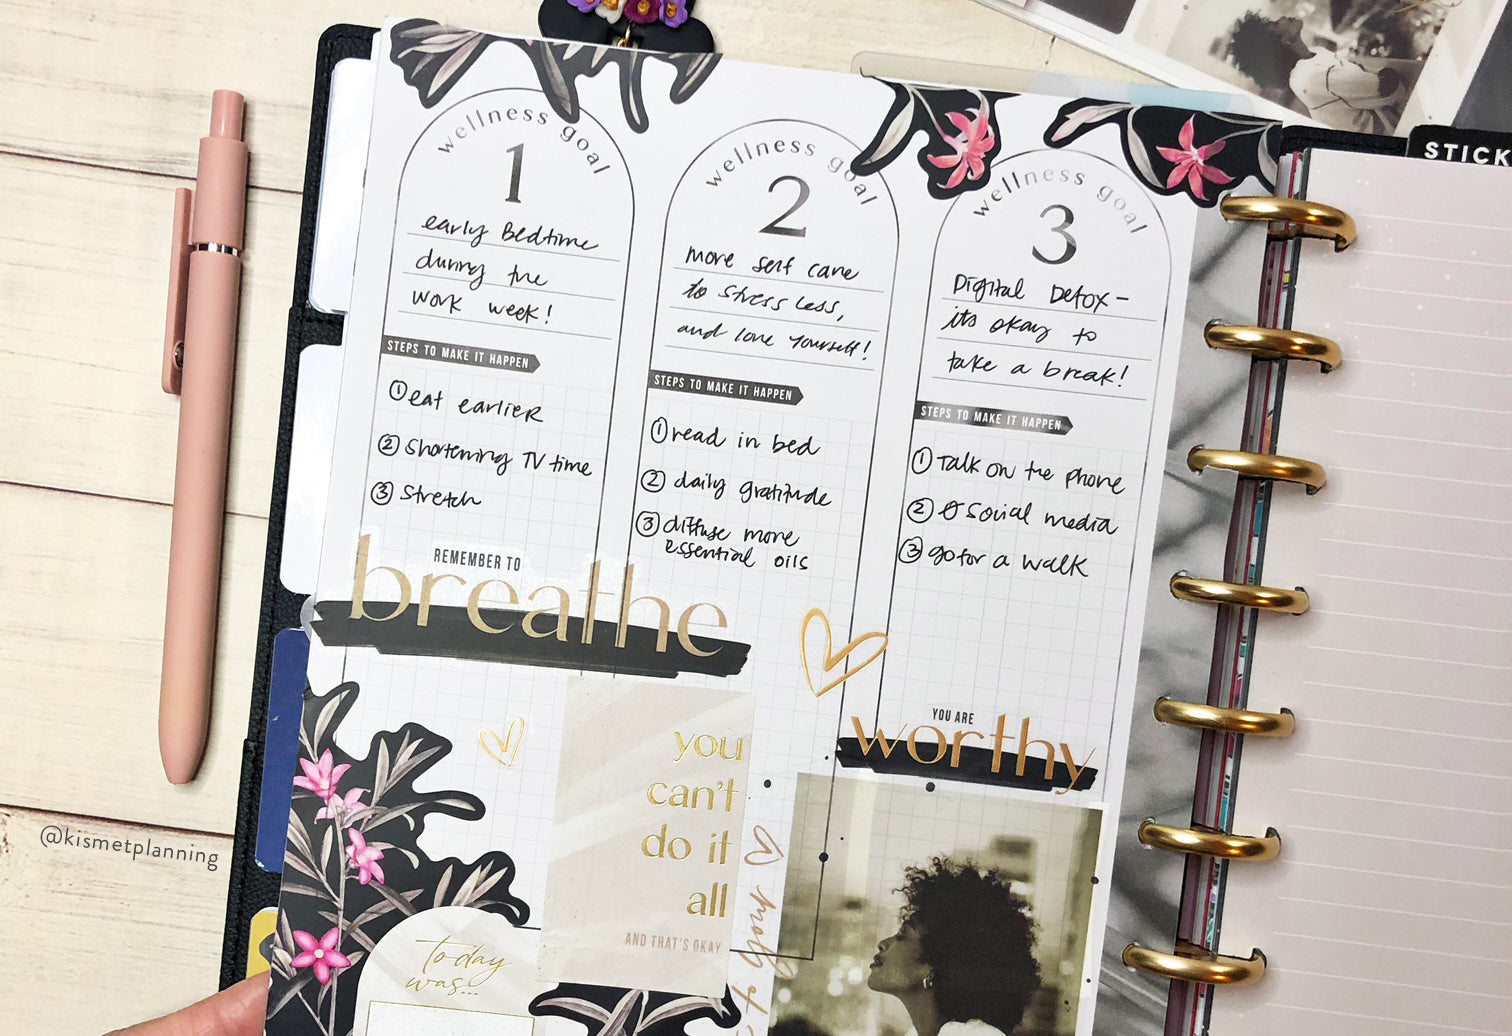 STICK
wellness goal
1
early Bedtime
during the
work week!
STEPS TO MAKE IT HAPPEN
① eat earlier
② Shortening TV time
③ Stretch
wellness goal
2
more self care
to stress less,
and love yourself!
STEPS TO MAKE IT HAPPEN
① read in bed
② daily gratitude
③ diffuse more
essential oils
wellness goal
3
Digital Detox -
its okay to
take a break!
STEPS TO MAKE IT HAPPEN
① Talk on the phone
② Ø social media
③ go for a walk
REMEMBER TO
breathe
YOU ARE
worthy
you
can't
do it
all
AND THAT'S OKAY
today
was...
@kismetplanning